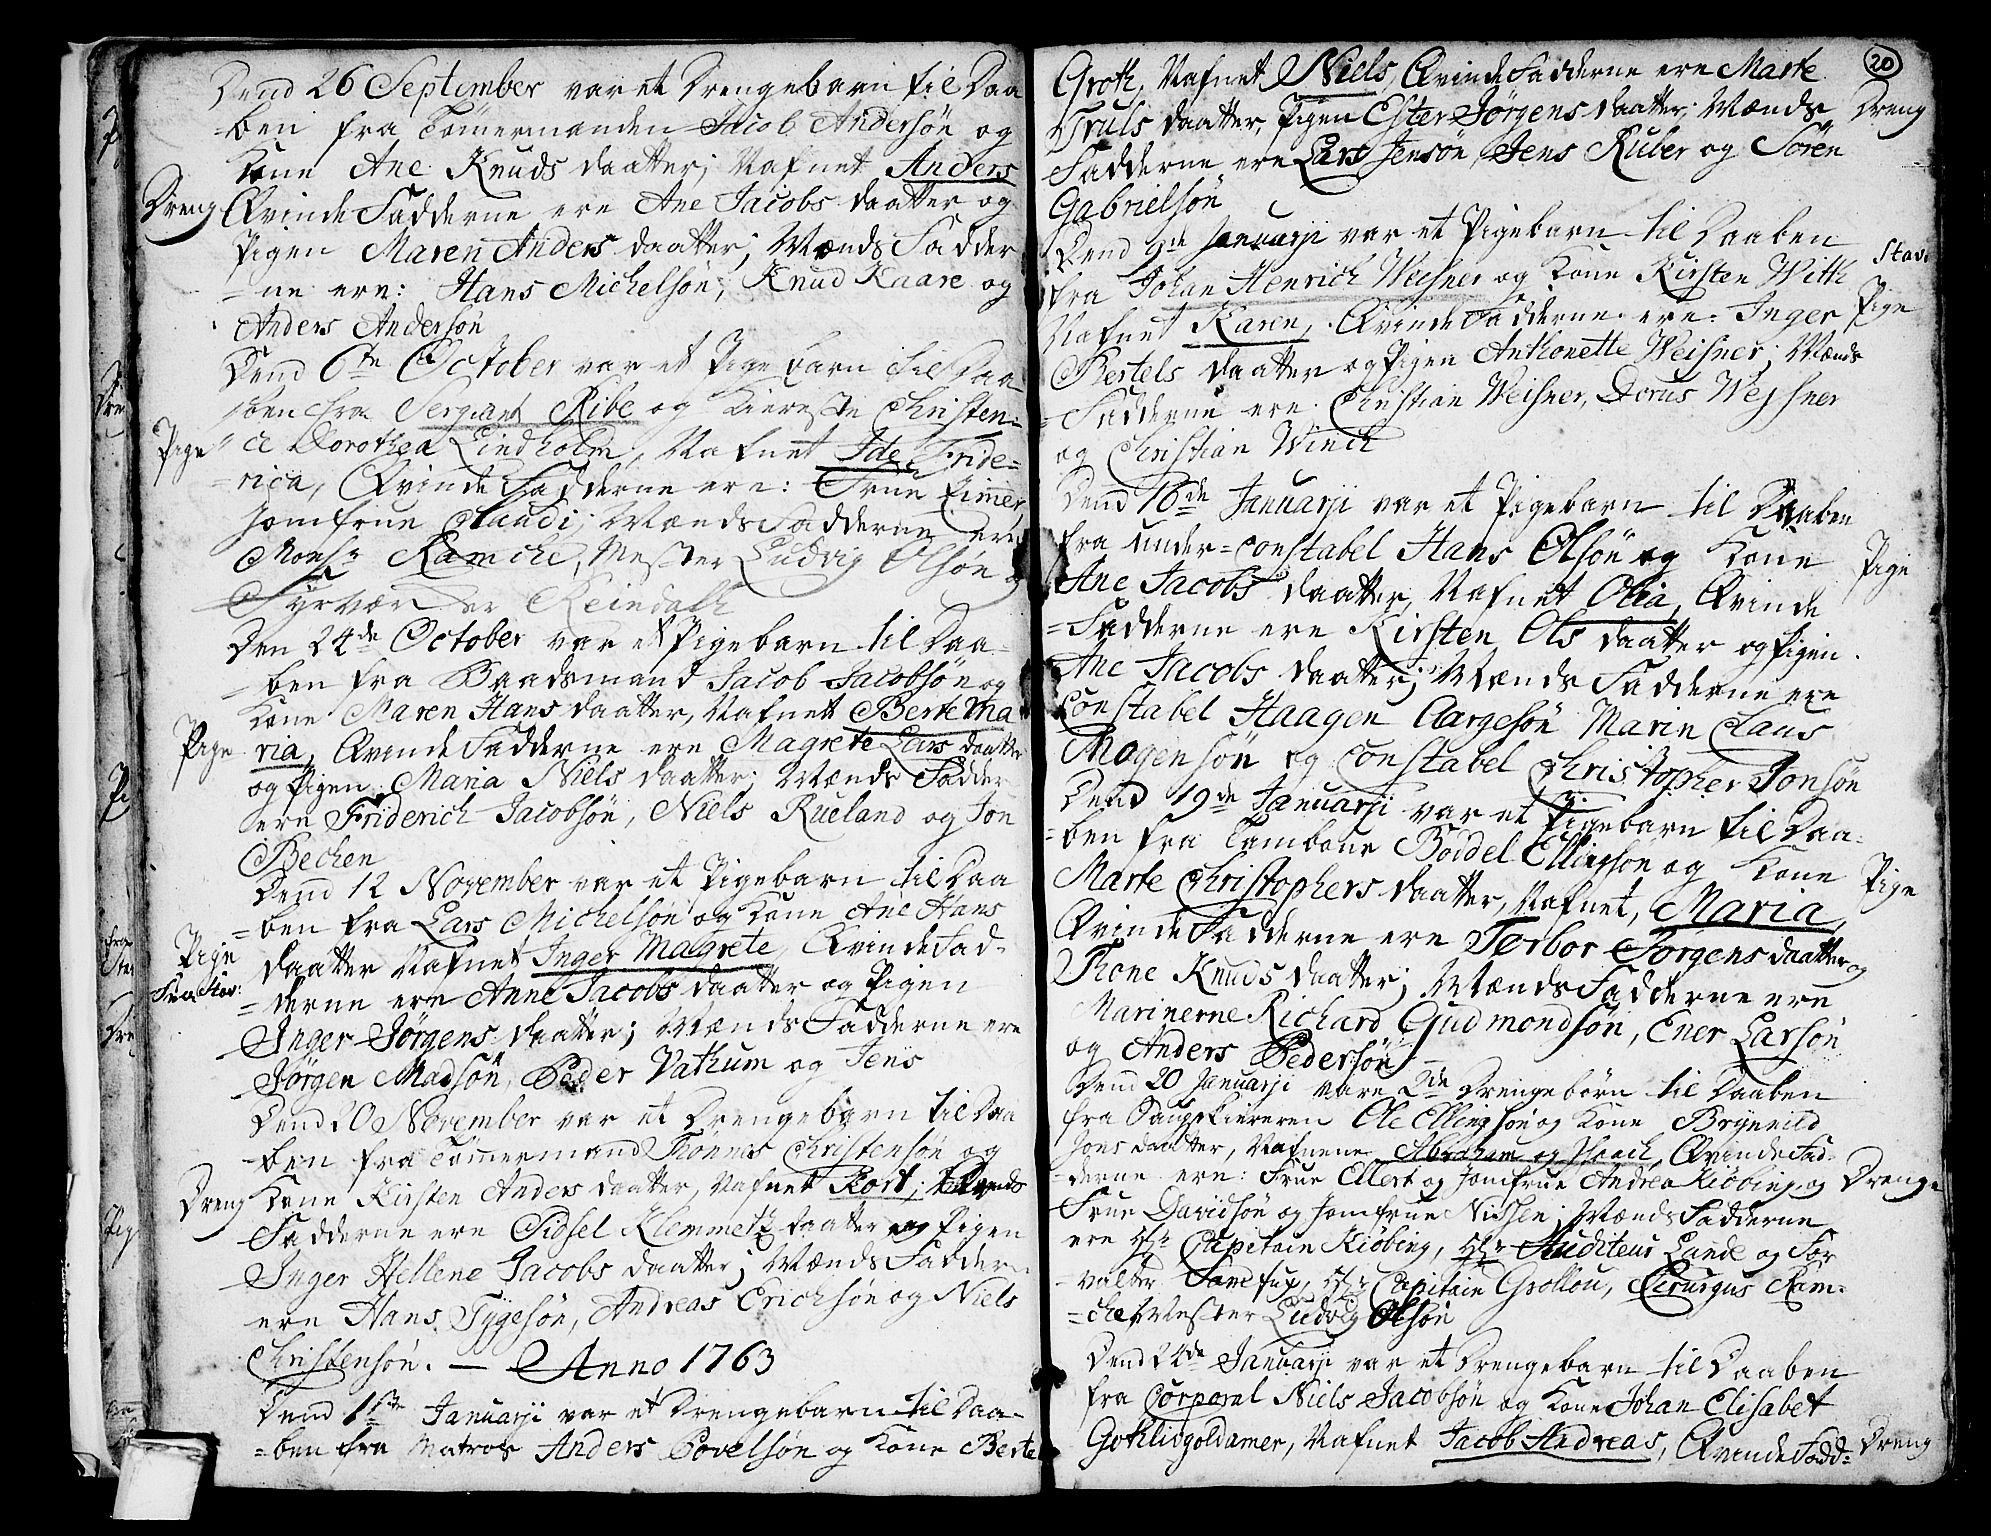 Dend 26 September var et Drengebarn til Daa
-ben fra Tømermanden Jacob Andersøn og
Kone Ane Knuds daatter; Nafnet Anders
Dreng
Qvinde Fadderne ere Ane Jacobs daatter og
Pigen Maren Anders daatter; Mænds Fadder
-ne ere: Hans Michelsøn, Knud Kaare og
Anders Andersøn
Dend 6te October var et Pige barn til Daa
ben fra Sergiant Ribe og Kiereste Christen-
Pige
ce Dorothea Lindholm, Nafnet Ide Fride=
=rica, Qvinde Fadderne ere: Frue Zimmer
Jomfrue Claudi; Mænds Fadderne ere
Monsr Ramche, Mester Ludvig Olsøn
Fyrværker Reindahl
Den 24de October var et Pigebarn til Daa-
-ben fra Baadsmand Jacob Jacobsøn og
Kone Maren Hans daatter, Nafnet Berte Ma
Pige
ria, Qvinde Fadderne ere Magrete Lars daatter
og Pigen Maria Niels daatter; Mænds Fadder
ere Friderich Jacobsøn, Niels Rueland og Jon
Bechen
Dend 12 November var et Pigebarn til Daa
=ben fra Lars Michelsøn og Kone Ane Hans
Pige
daatter Nafnet Inger Magrete, Qvinde Fad-
fra Stav:
=derne ere Anne Jacobs daatter og Pigen
Inger Jørgens daatter; Mænds Fadderne ere
Jørgen Madsøn, Peder Vathum og Jens
Dend 20 November var et Drengebarn til Daa
-ben fra Tømermand Tønnes Christensøn og
Dreng
Kone Kirsten Anders daatter, Nafnet Kort;
Fadderne ere Sidsel Klemmetz daatter og Pigen
Inger Hellene Jacobs daatter; Mænds Fadder
ere Hans Tygesøn, Andreas Erichsøn og Niels
Christensøn. — Anno 1763
Dend 1ste Januarji var et Drengebarn til Daa-
=ben fra Matros Anders Povelsøn og Kone Berte
20
Groth, Nafnet Niels, Qvinde Fadderne ere Marte
Truls daatter, Pigen Ester Jørgens daatter; Mænds
Dreng
Fadderne ere Lars Jensøn, Jens Ruber og Søren
Gabrielsøn
Dend 9de Januarji var et Pigebarn til Daaben
Stav.
fra Johan Henrich Weisner og Kone Kirsten With
Pige
Nafnet Karen, Qvinde Fadderne ere: Inger
Bertels daatter og Pigen Anthonette Weisner; Mænds
=Fadderne ere Christian Weisner, Dorus Weysner
og Christian Winch
Dend 16de Januarji var et Pigebarn til Daaben
fra under=constabel Hans Olsøn og Kone
Pige
Ane Jacobs daatter, Nafnet Olia, Qvinde
=Fadderne ere Kirsten Ols daatter og Pigen
Ane Jacobs daatter; Mænds Fadderne ere
Constabel Haagen Aargesøn Marin Claus
Mogensøn og Constabel Christopher Jonsøn
Dend 19de Januarji var et Pigebarn til Daa-
=ben fra Tambour Boddel Ellingsøn og Kone
Pige
Marte Christophers daatter, Nafnet, Maria,
Qvinde Fadderne ere Torbor Jørgens daatter og
Tone Knuds daatter; Mænds Fadderne ere
Marinerne Richard Gudmondsøn, Ener Larsøn
og Anders Pedersøn
Dend 20 Januarji vare 2de Drengebørn til Daaben
fra Saugskiereren Ole Ellingsøn og Kone Brynnild
Jons daatter, Nafnene Abraham og Isaach, Qvinde Fad-
-derne ere: Frue Ellert og Jomfrue Andrea Kiøbing og
Drenge
Frue Davidsøn og Jomfrue Nissen; Mænds Fadderne
ere Hr Capitain Kiøbing, Hr Auditeur Lunde og For
valter Samsu, Hr Capitain Grollou, Cirurgus Ram-
=che, Mester Ludvig Olsøn
Dend 24de Januarji var et Drengebarn til Daaben
fra Corporal Niels Jacobsøn og Kone Johan Elisabet
Gotlivgoldamer, Nafnet Jacob Andreas, Qvinde Fadd=
Dreng